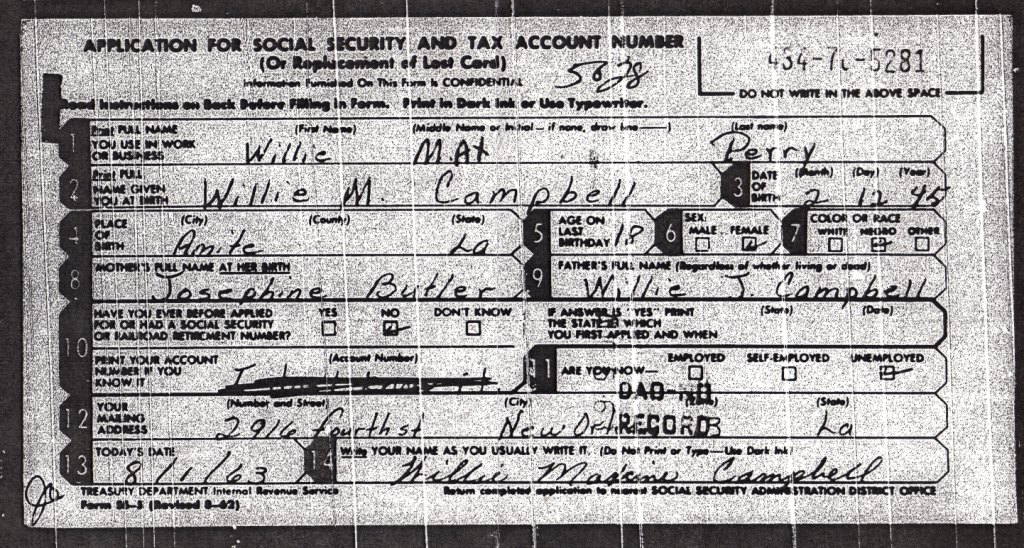 APPLICATION FOR SOCIAL SECURITY AND TAX ACCOUNT NUMBER
(Or Replacement of Lost Card)
Information Furnished On This Form Is CONFIDENTIAL
DO NOT WRITE IN THE ABOVE SPACE
Read Instructions on Back Before Filling In Form. Print in Dark Ink or Use Typewriter.
1 Print FULL NAME YOU USE IN WORK OR BUSINESS (First Name) Willie (Middle Name or Initial—if none, draw line——) MAX (Last name) Perry
2 Print FULL NAME GIVEN YOU AT BIRTH Willie M. Campbell 3 DATE OF BIRTH (Month) (Day) (Year) 2 12 45
4 PLACE OF BIRTH (City) (County) (State) Amite La 5 AGE ON LAST BIRTHDAY 18 6 SEX MALE FEMALE 7 COLOR OR RACE WHITE NEGRO OTHER
8 MOTHER'S FULL NAME AT HER BIRTH Josephine Butler 9 FATHER'S FULL NAME (Regardless of whether living or dead) Willie J. Campbell
10 HAVE YOU EVER BEFORE APPLIED FOR OR HAD A SOCIAL SECURITY OR RAILROAD RETIREMENT NUMBER? YES NO DON'T KNOW IF ANSWER IS "YES" PRINT THE STATE IN WHICH YOU FIRST APPLIED AND WHEN (State) (Date)
PRINT YOUR ACCOUNT NUMBER IF YOU KNOW IT (Account Number) 11 ARE YOU NOW— EMPLOYED SELF-EMPLOYED UNEMPLOYED
RECORD
12 YOUR MAILING ADDRESS (Number and Street) 2916 fourth st (City) New (State) La
13 TODAY'S DATE 8/1/63 14 Write YOUR NAME AS YOU USUALLY WRITE IT. (Do Not Print or Type—Use Dark Ink) Willie Maxine Campbell
TREASURY DEPARTMENT Internal Revenue Service Return completed application to nearest SOCIAL SECURITY ADMINISTRATION DISTRICT OFFICE
Form SS-5 (Revised 8-62)